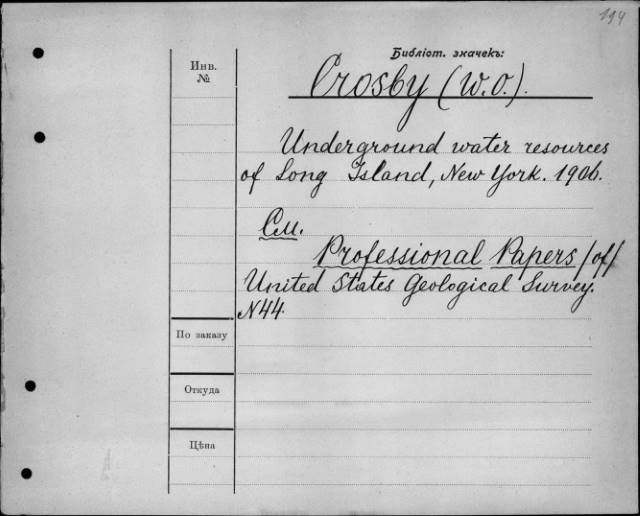 194
Библіот. значекъ:
Инв.
№
Crosby (W.O.).
Underground water resources
of Long Island, New York. 1906.
См.
Professional Papers /of/
United States Geological Survey.
N44.
По заказу
Откуда
Цѣна